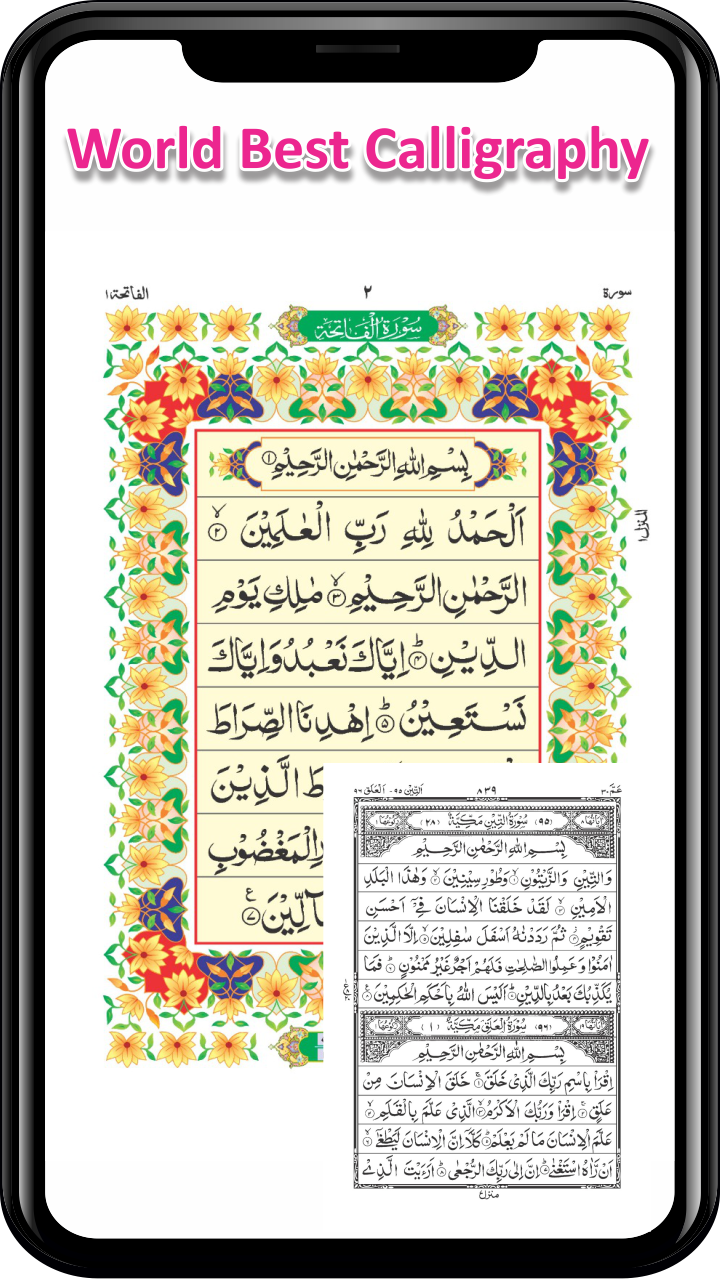 World Best Calligraphy
سورة ٢ الفاتحة١
سُوْرَةُ الْفَاتِحَةِ
بِسْمِ اللّٰهِ الرَّحْمٰنِ الرَّحِيْمِ ①
اَلْحَمْدُ لِلّٰهِ رَبِّ الْعٰلَمِيْنَ ②
الرَّحْمٰنِ الرَّحِيْمِ ③ مٰلِكِ يَوْمِ
الدِّيْنِ ④ اِيَّاكَ نَعْبُدُ وَاِيَّاكَ
نَسْتَعِيْنُ ⑤ اِهْدِنَا الصِّرَاطَ
الَّذِيْنَ
الْمَغْضُوْبِ
⑦
المنزل١
عَمَّ ٣٠ ٨٣٩ اَلتِّيْن ٩٥ - اَلْعَلَق ٩٦
(٩٥) سُوْرَةُ التِّيْنِ مَكِّيَّةٌ (٢٨)
بِسْمِ اللّٰهِ الرَّحْمٰنِ الرَّحِيْمِ
وَالتِّيْنِ وَالزَّيْتُوْنِ ① وَطُوْرِ سِيْنِيْنَ ② وَهٰذَا الْبَلَدِ
الْاَمِيْنِ ③ لَقَدْ خَلَقْنَا الْاِنْسَانَ فِيْٓ اَحْسَنِ
تَقْوِيْمٍ ④ ثُمَّ رَدَدْنٰهُ اَسْفَلَ سٰفِلِيْنَ ⑤ اِلَّا الَّذِيْنَ
اٰمَنُوْا وَعَمِلُوا الصّٰلِحٰتِ فَلَهُمْ اَجْرٌ غَيْرُ مَمْنُوْنٍ ⑥ فَمَا
يُكَذِّبُكَ بَعْدُ بِالدِّيْنِ ⑦ اَلَيْسَ اللّٰهُ بِاَحْكَمِ الْحٰكِمِيْنَ ⑧
(٩٦) سُوْرَةُ الْعَلَقِ مَكِّيَّةٌ (١)
بِسْمِ اللّٰهِ الرَّحْمٰنِ الرَّحِيْمِ
اِقْرَاْ بِاسْمِ رَبِّكَ الَّذِيْ خَلَقَ ① خَلَقَ الْاِنْسَانَ مِنْ
عَلَقٍ ② اِقْرَاْ وَرَبُّكَ الْاَكْرَمُ ③ الَّذِيْ عَلَّمَ بِالْقَلَمِ ④
عَلَّمَ الْاِنْسَانَ مَا لَمْ يَعْلَمْ ⑤ كَلَّآ اِنَّ الْاِنْسَانَ لَيَطْغٰٓى ⑥
اَنْ رَّاٰهُ اسْتَغْنٰى ⑦ اِنَّ اِلٰى رَبِّكَ الرُّجْعٰى ⑧ اَرَءَيْتَ الَّذِيْ